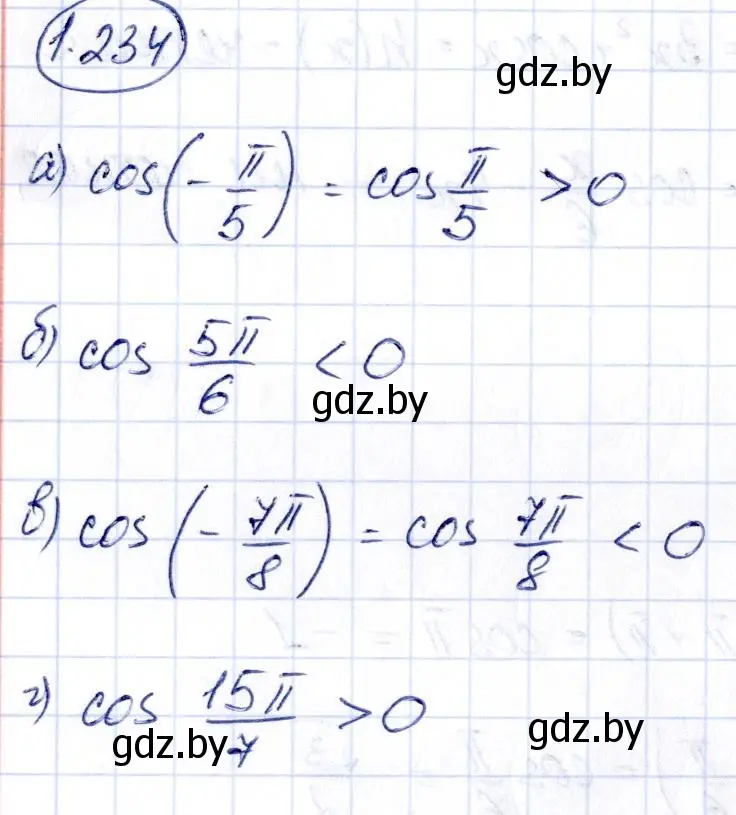 1.234
gdz.by
а) cos(-π/5) = cos π/5 > 0
б) cos 5π/6 < 0
gdz.by
в) cos(-7π/8) = cos 7π/8 < 0
г) cos 15π/7 > 0
gdz.by
gdz.by